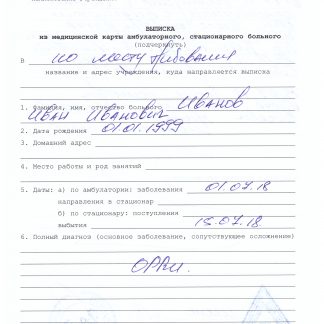 ВЫПИСКА
из медицинской карты амбулаторного, стационарного больного
(подчеркнуть)
В по месту требования
название и адрес учреждения, куда направляется выписка
1. Фамилия, имя, отчество больного Иванов
Иван Иванович
2. Дата рождения 01.01.1999
3. Домашний адрес
4. Место работы и род занятий
5. Даты: а) по амбулатории: заболевания 01.07.18
направления в стационар
б) по стационару: поступления
выбытия 15.07.18.
6. Полный диагноз (основное заболевание, сопутствующее осложнение)
ОРВИ.